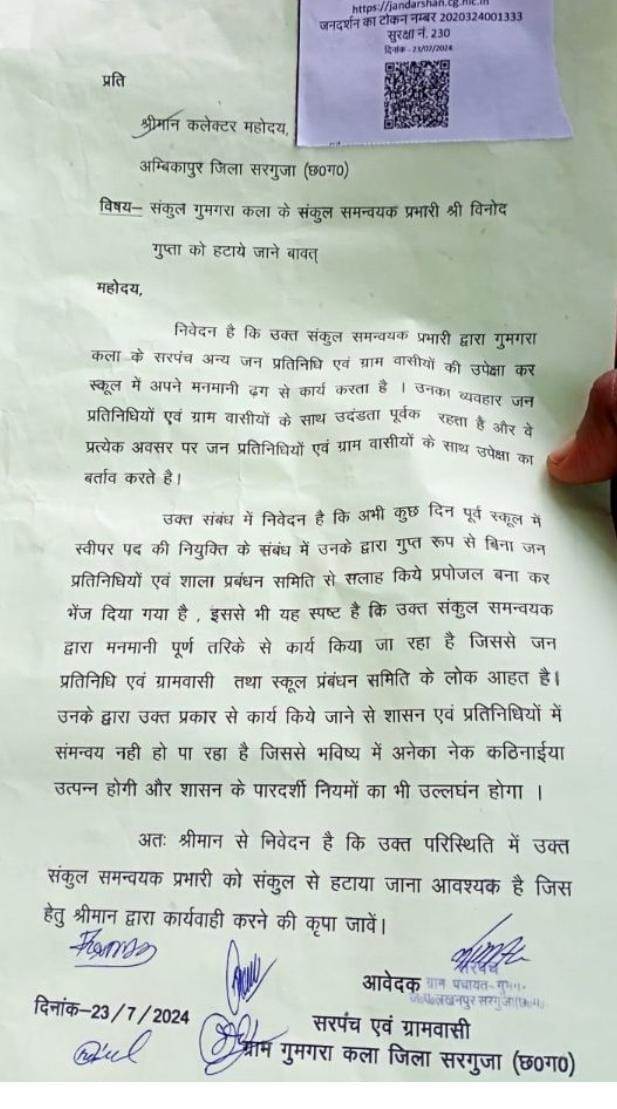 https://jandarshan.cg.nic.in
जनदर्शन का टोकन नम्बर 2020324001333
सुरक्षा नं. 230
दिनांक - 23/07/2024
प्रति
श्रीमान कलेक्टर महोदय,
अम्बिकापुर जिला सरगुजा (छ0ग0)
विषय– संकुल गुमगरा कला के संकुल समन्वयक प्रभारी श्री विनोद
गुप्ता को हटाये जाने बावत्
महोदय,
निवेदन है कि उक्त संकुल समन्वयक प्रभारी द्वारा गुमगरा
कला के सरपंच अन्य जन प्रतिनिधि एवं ग्राम वासीयों की उपेक्षा कर
स्कूल में अपने मनमानी ढ़ग से कार्य करता है । उनका व्यवहार जन
प्रतिनिधियों एवं ग्राम वासीयों के साथ उदंडता पूर्वक रहता है और वे
प्रत्येक अवसर पर जन प्रतिनिधियों एवं ग्राम वासीयों के साथ उपेक्षा का
बर्ताव करते है।
उक्त संबंध में निवेदन है कि अभी कुछ दिन पूर्व स्कूल में
स्वीपर पद की नियुक्ति के संबंध में उनके द्वारा गुप्त रूप से बिना जन
प्रतिनिधियों एवं शाला प्रबंधन समिति से सलाह किये प्रपोजल बना कर
भेंज दिया गया है , इससे भी यह स्पष्ट है कि उक्त संकुल समन्वयक
द्वारा मनमानी पूर्ण तरिके से कार्य किया जा रहा है जिससे जन
प्रतिनिधि एवं ग्रामवासी तथा स्कूल प्रंबंधन समिति के लोक आहत है।
उनके द्वारा उक्त प्रकार से कार्य किये जाने से शासन एवं प्रतिनिधियों में
संमन्वय नही हो पा रहा है जिससे भविष्य में अनेका नेक कठिनाईया
उत्पन्न होगी और शासन के पारदर्शी नियमों का भी उल्लघंन होगा ।
अतः श्रीमान से निवेदन है कि उक्त परिस्थिति में उक्त
संकुल समन्वयक प्रभारी को संकुल से हटाया जाना आवश्यक है जिस
हेतु श्रीमान द्वारा कार्यवाही करने की कृपा जावें।
सरपंच
आवेदक ग्राम पंचायत-
दिनांक–23/7/2024
सरपंच एवं ग्रामवासी
ग्राम गुमगरा कला जिला सरगुजा (छ0ग0)